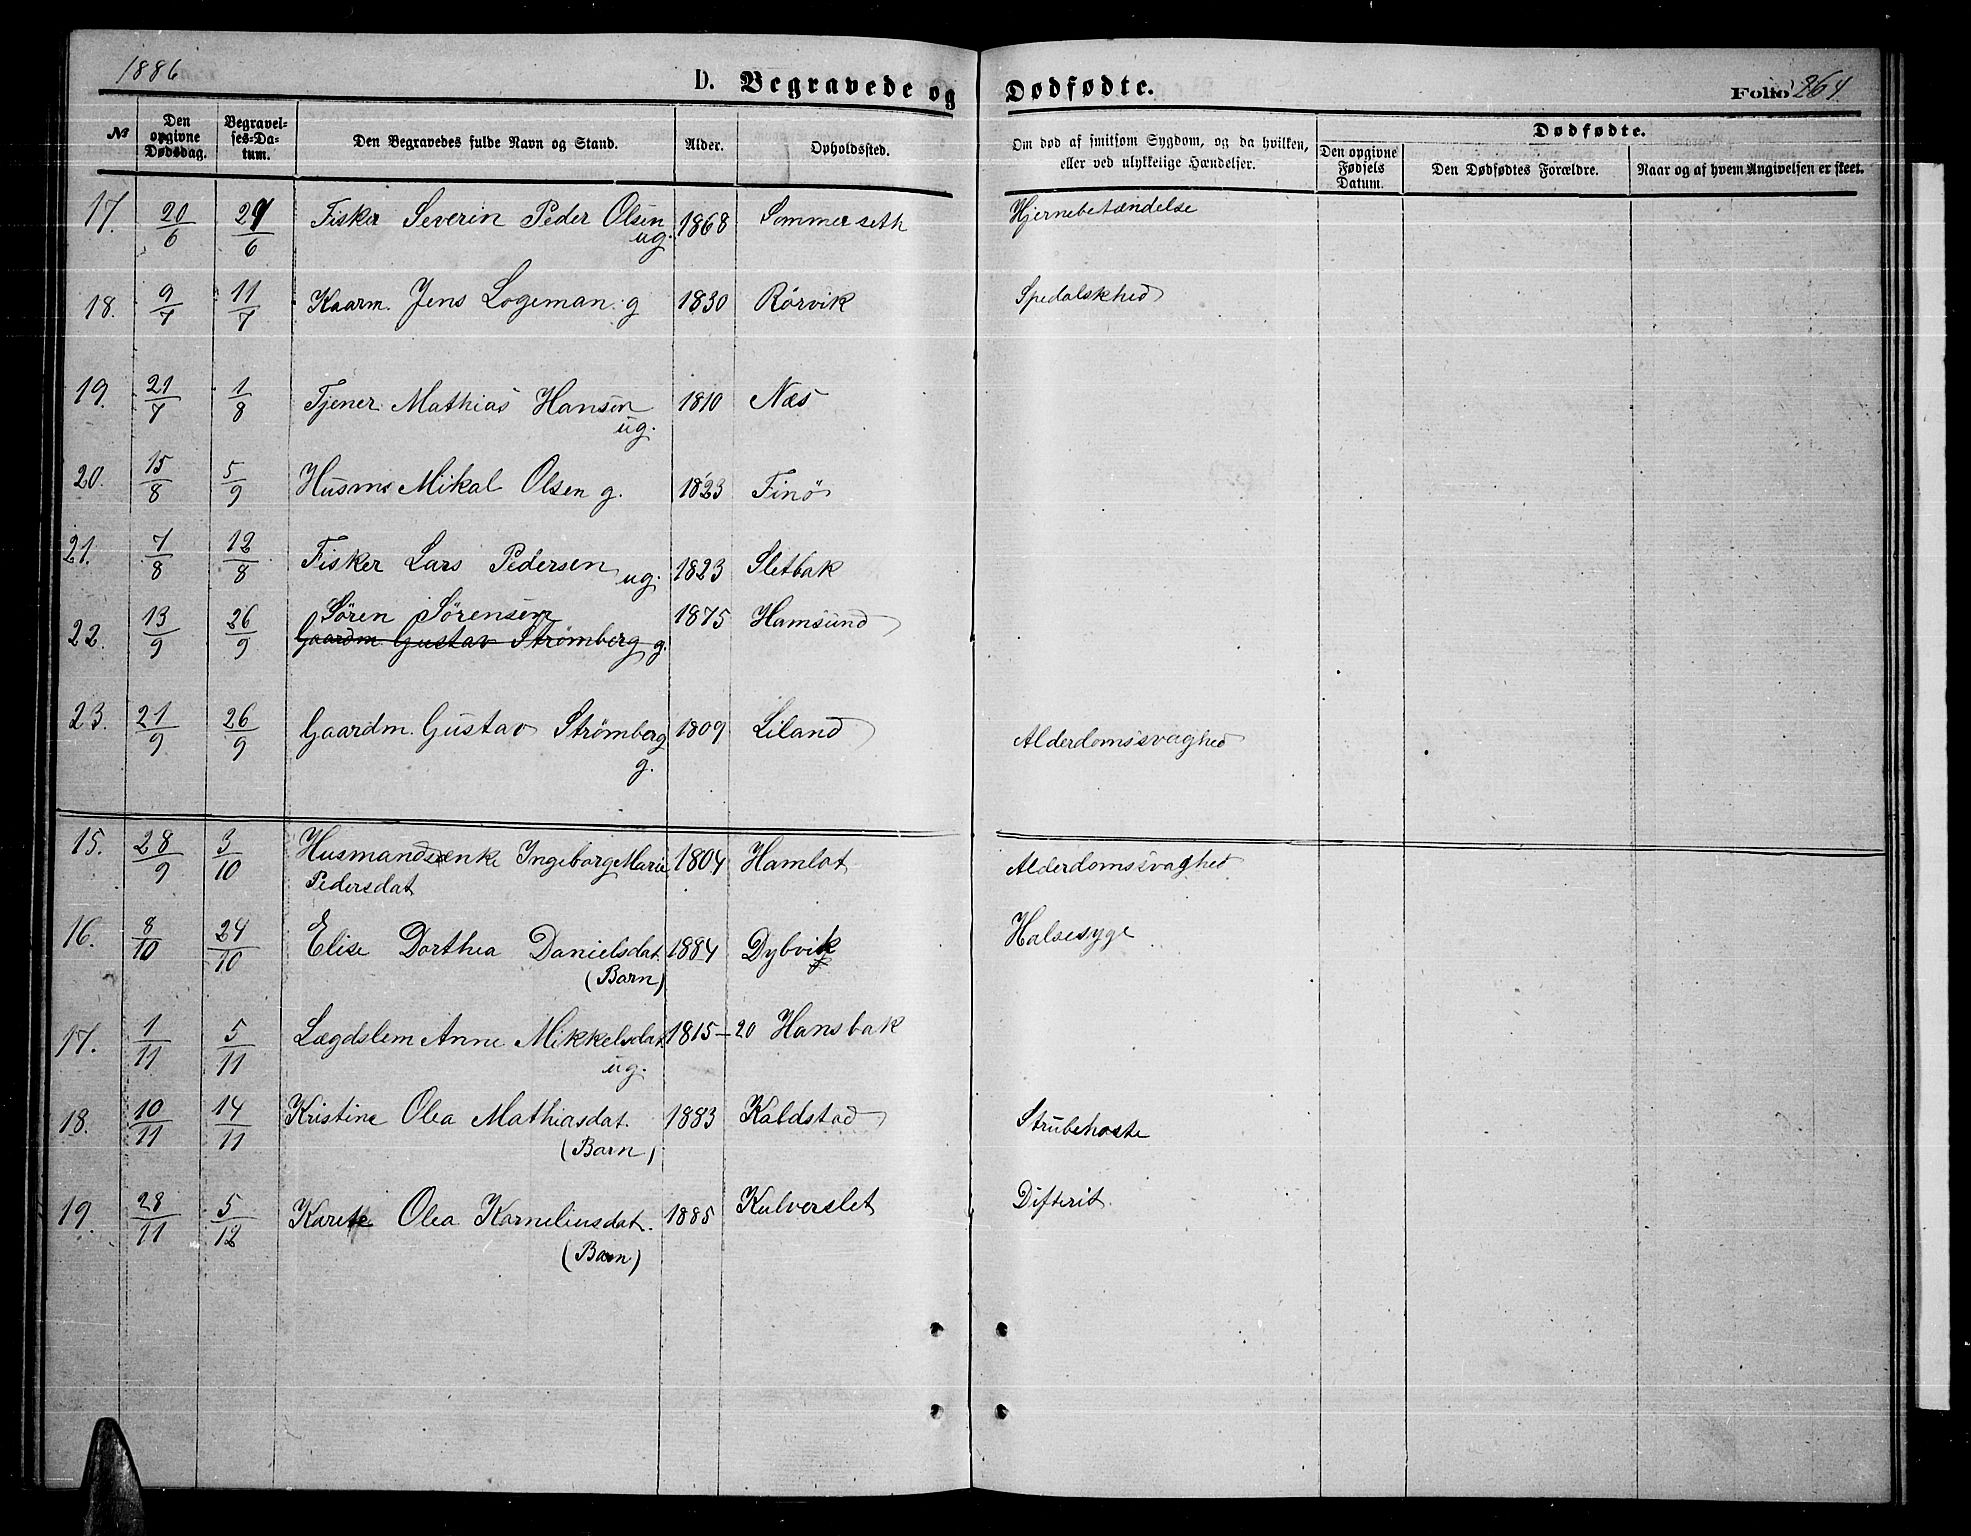 1886
D. Begravede og Dødfødte.
Folio 264
№
Den opgivne Dødsdag.
Begravelses-Datum.
Den Begravedes fulde Navn og Stand.
Alder.
Opholdssted.
Om død af smitsom Sygdom, og da hvilken, eller ved ulykkelige Hændelser.
Dødfødte.
Den opgivne Fødsels Datum.
Den Dødfødtes Forældre.
Naar og af hvem Angivelsen er skeet.
17. 20/6 29/6 Fisker Severin Peder Olsen 1868 Sommerseth Hjernebetændelse
ug.
18. 9/7 11/7 Kaarm. Jens Logeman g 1830 Rörvik Spedalskhed
19. 21/7 1/8 Tjener Mathias Hansen 1810 Næs
ug.
20. 15/8 5/9 Husm. Mikal Olsen g. 1823 Finö
21. 7/8 12/8 Fisker Lars Pedersen ug. 1823 Sletbak
22. 13/9 26/9 Søren Sørensen 1875 Hamsund
Gaardm. Gustav Strømberg g.
23. 21/9 26/9 Gaardm. Gustav Strømberg 1809 Liland Alderdomssvaghed
g.
15. 28/9 3/10 Husmandsenke Ingeborg Marie 1804 Hamlot Alderdomssvaghed
Pedersdat
16. 8/10 24/10 Elise Dorthea Danielsdat. 1884 Dybvik Halsesyge
(Barn)
17. 1/11 5/11 Lægdslem Anne Mikkelsdat. 1815-20 Hansbak
ug.
18. 10/11 14/11 Kristine Olea Mathiasdat. 1883 Kaldstad Strubehoste
(Barn)
19. 28/11 5/12 Olea Korneliusdat. 1885 Kulverslet Difterit.
(Barn)